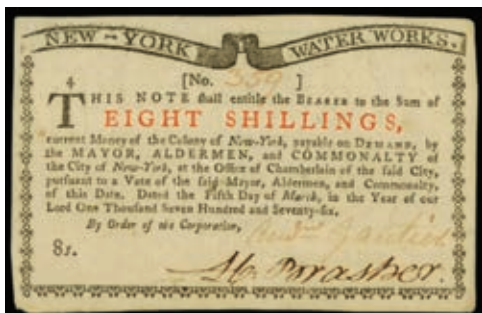 NEW-YORK WATER WORKS.
4
[No. 339 ]
THIS NOTE shall entitle the BEARER to the Sum of
EIGHT SHILLINGS,
current Money of the Colony of New-York, payable on DEMAND, by
the MAYOR, ALDERMEN, and COMMONALTY of
the City of New-York, at the Office of Chamberlain of the said City,
pursuant to a Vote of the said Mayor, Aldermen, and Commonalty,
of this Date. Dated the Fifth Day of March, in the Year of our
Lord One Thousand Seven Hundred and Seventy-six.
By Order of the Corporation,
8s.